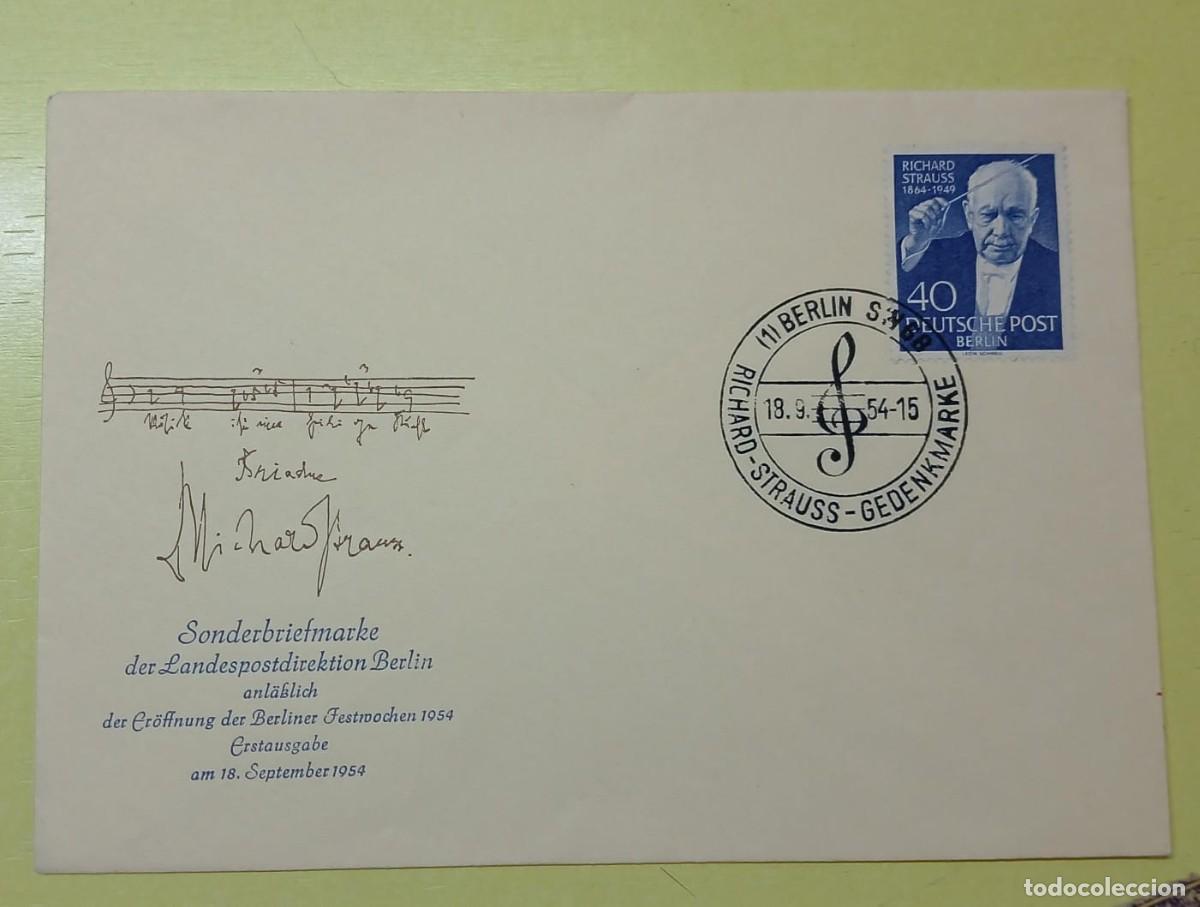 RICHARD
STRAUSS
1864-1949
40
DEUTSCHE POST
BERLIN
(1) BERLIN SW 68
18.9.54-15
RICHARD-STRAUSS-GEDENKMARKE
Musik
Ariadne
Richard Strauss.
Sonderbriefmarke
der Landespostdirektion Berlin
anläßlich
der Eröffnung der Berliner Festwochen 1954
Erstausgabe
am 18. September 1954
todocoleccion